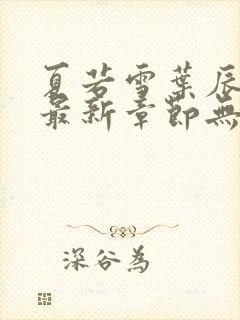 夏若雪葉辰
最新章節無
深谷為